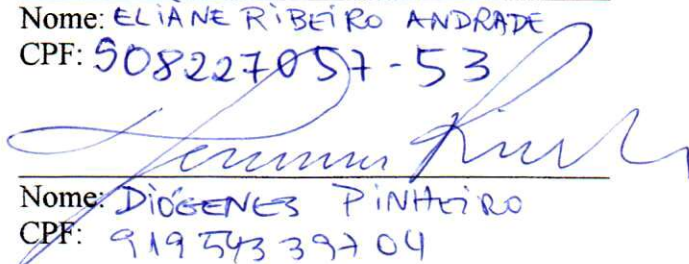 Nome: ELIANE RIBEIRO ANDRADE
CPF: 908227057-53
Nome: DIOGENES PINHEIRO
CPF: 919 543 397 04